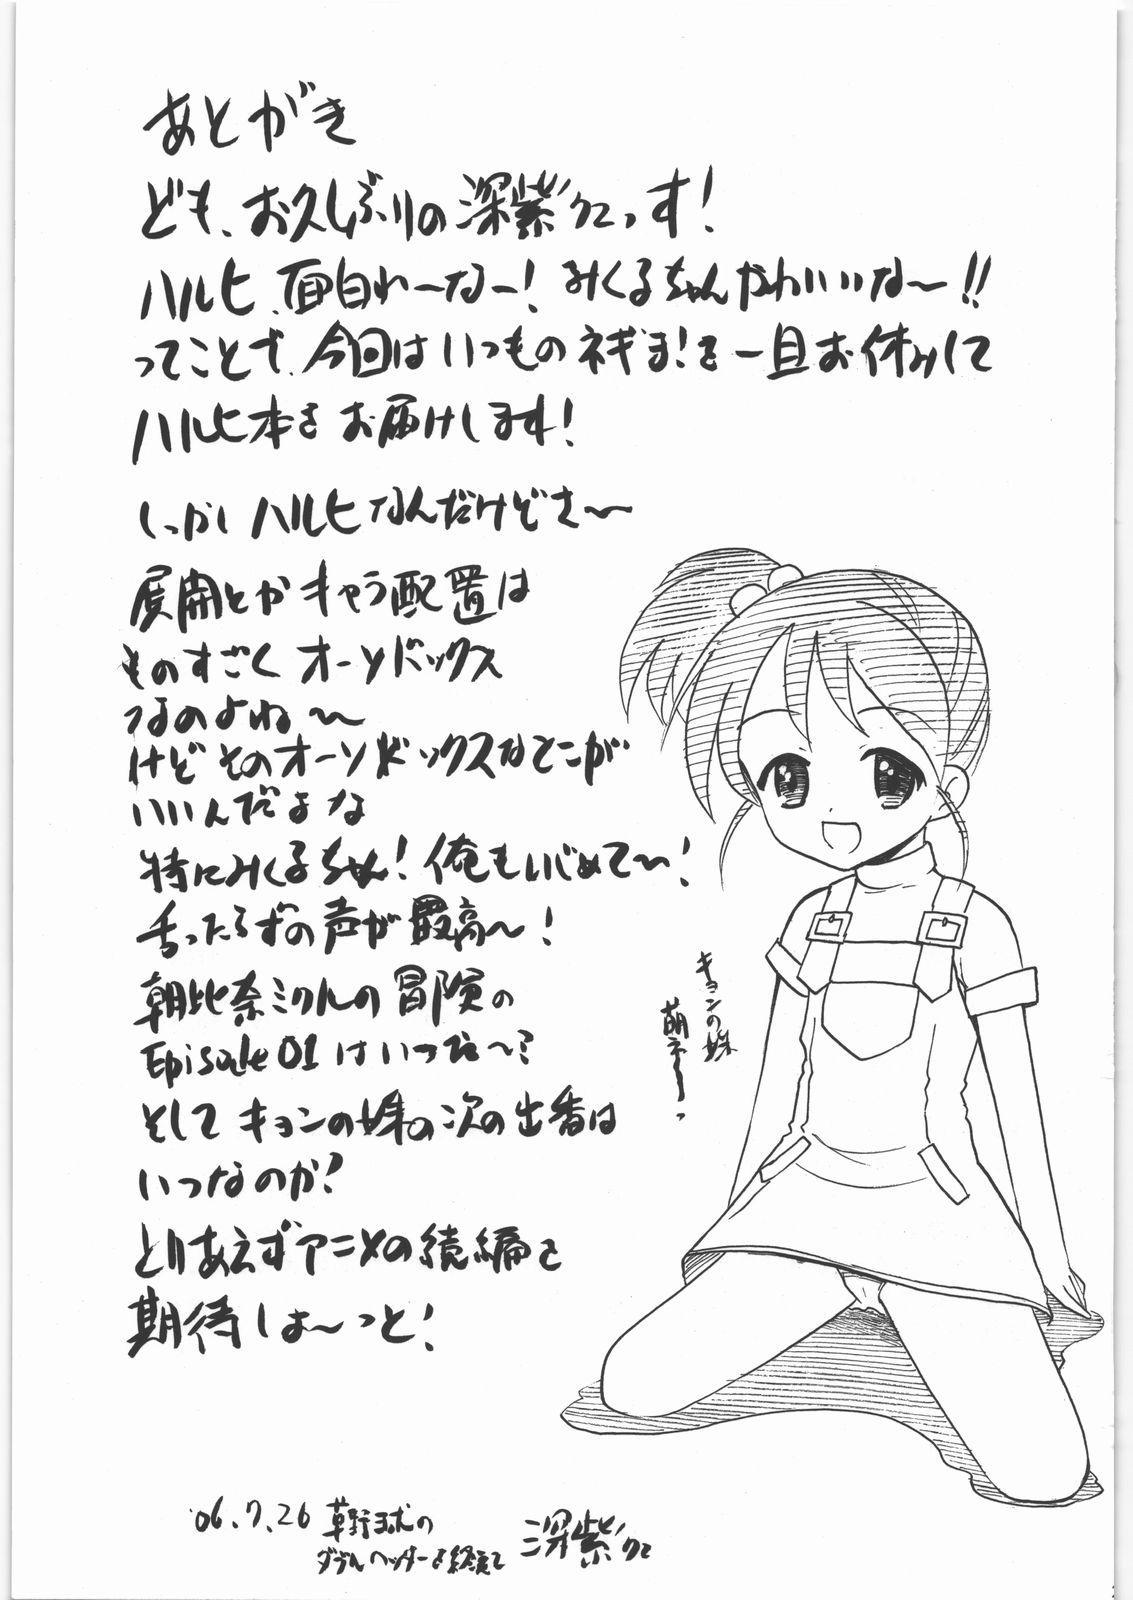 あとがき
ども、お久しぶりの深紫クっす!
ハルヒ、面白れーなー!みくるちゃんかわいいな〜!!
ってことで、今回はいつものネギま!を一旦お休みして
ハルヒ本をお届けします!
しっかしハルヒなんだけどさ〜
展開とかキャラ配置は
ものすごくオーソドックス
なのよね〜
けどそのオーソドックスなとこが
いいんだよな
特にみくるちゃん!俺もいじめて〜!
舌ったらずの声が最高〜!
朝比奈ミクルの冒険の
Episode01はいつだ〜?
そしてキョンの妹の次の出番は
いつなのか?
とりあえずアニメの続編を
期待しよ〜っと!
キョンの妹
萌え〜っ
'06.7.26 草野球の
ダブルヘッダーを経て 深紫